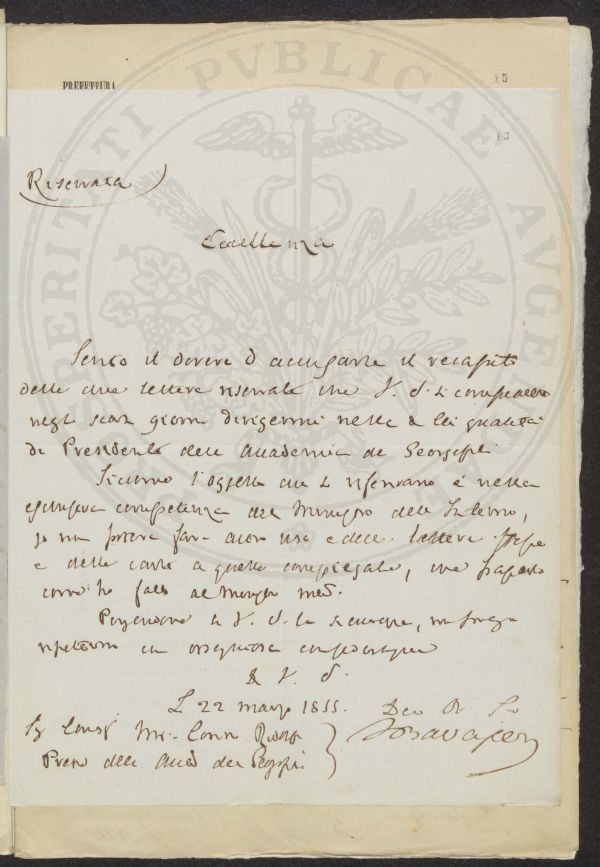 PREFETTURA
15
13
PROSPERITATI PVBLICAE AVGENDAE
Riservata
Eccellenza
Sento il dovere d'accusarle il recapito
delle due lettere riservate che V. S. si compiacque
negli scorsi giorni dirigermi nella di lei qualità
di Presidente dell Accademia de Georgofili
Siccome l'oggetto cui si riferivano è nella
esclusiva competenza del Ministro dell Interno,
io non poteva fare altro uso e delle lettere stesse
e delle carte a quelle compiegate, che passarle
come ho fatto al Ministro med.
Porgendone a V. S. la sicurezza, mi pregio
ripetermi con ossequiosa considerazione
Di V. S.
Li 22 marzo 1855.
Dev
Sig Consig Mse Comm Ridolfi
Presid dell Accad dei Georgofili